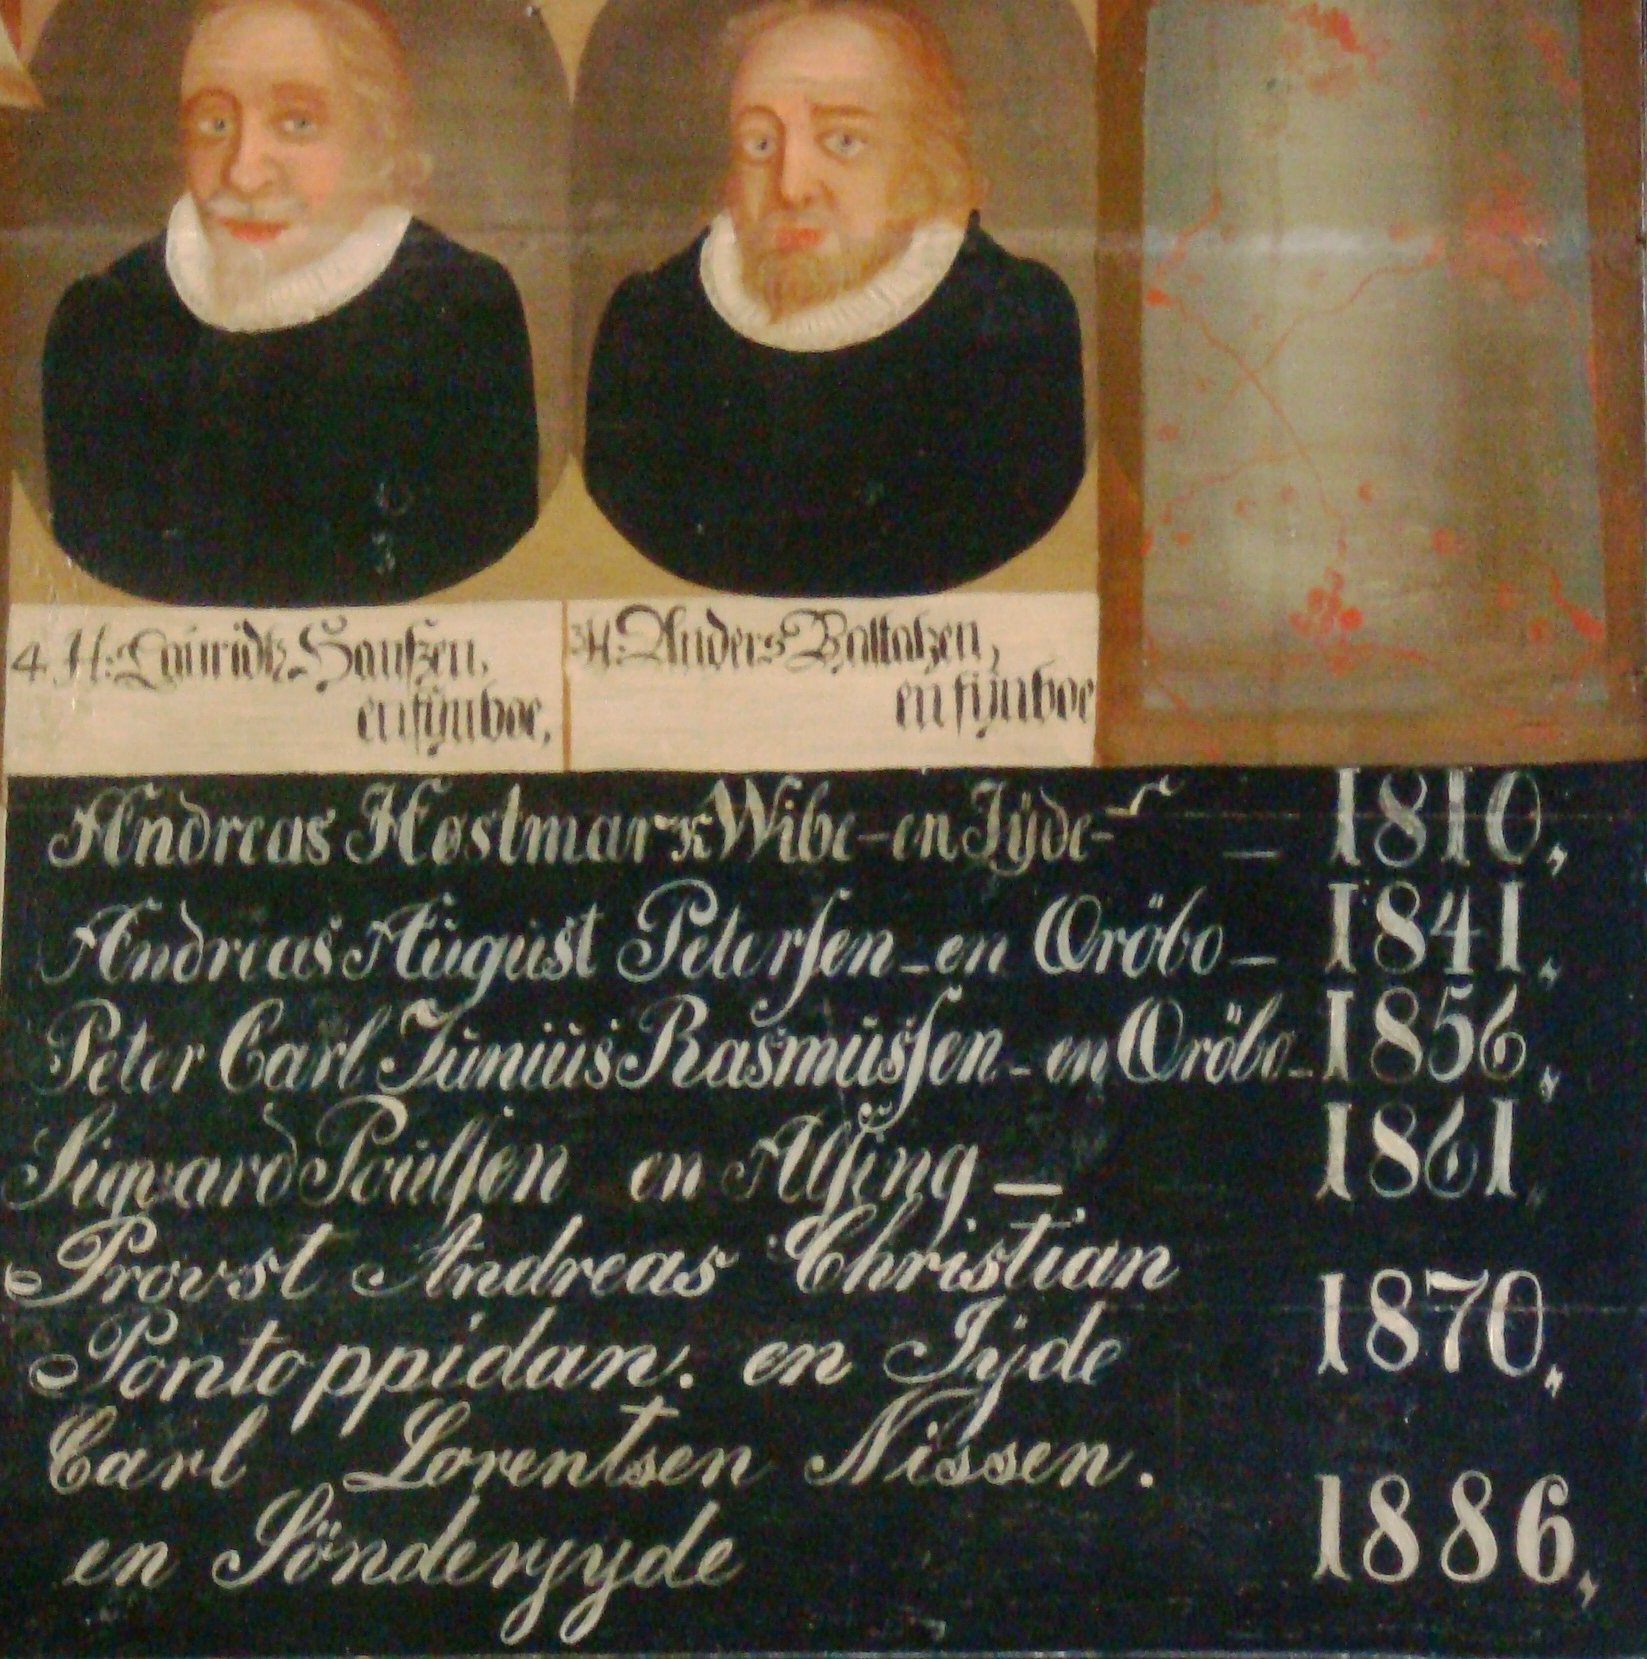 4. H: Lauridtz Hanszen,
en fÿnboe,
3 H: Anders Baltatzen,
en fÿnboe
Andreas Høstmark Wibe - en Jÿde - — 1810,
Andreas August Petersen - en Oröbo - 1841,
Peter Carl Junius Rasmussen - en Oröbo - 1856,
Sigvard Poulsen en Alsing — 1861,
Provst Andreas Christian
Pontoppidan. en Jÿde 1870,
Carl Lorentsen Nissen.
en Sönderjyde 1886,